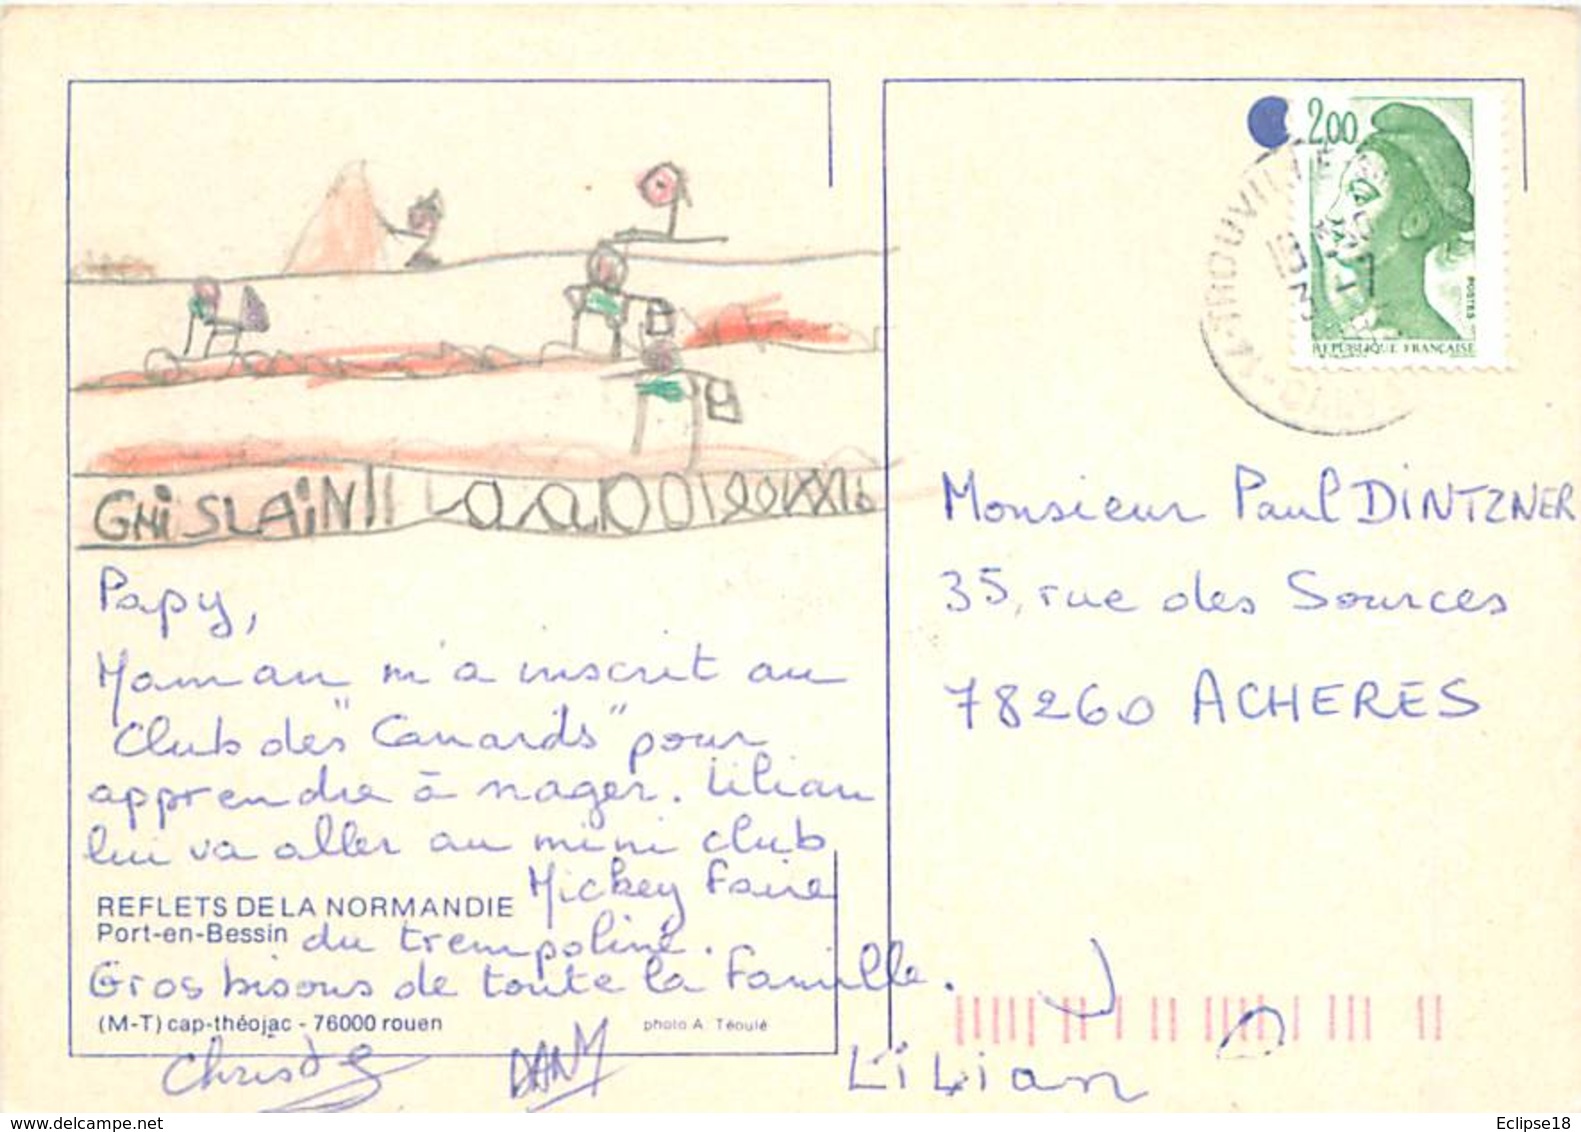 2.00
POSTES
REPUBLIQUE FRANÇAISE
14-TROUVILLE
GHiSLAiN
Papy,
Maman m'a inscrit au
Club des "Canards" pour
apprendre à nager. Lilian
lui va aller au mini club
Mickey Faire
du trempoline.
Gros bisous de toute la Famille.
DANY
LiLian
REFLETS DE LA NORMANDIE
Port-en-Bessin
(M-T) cap-théojac - 76000 rouen
photo A. Téoulé
Monsieur Paul DINTZNER
35, rue des Sources
78260 ACHERES
www.delcampe.net
Eclipse18